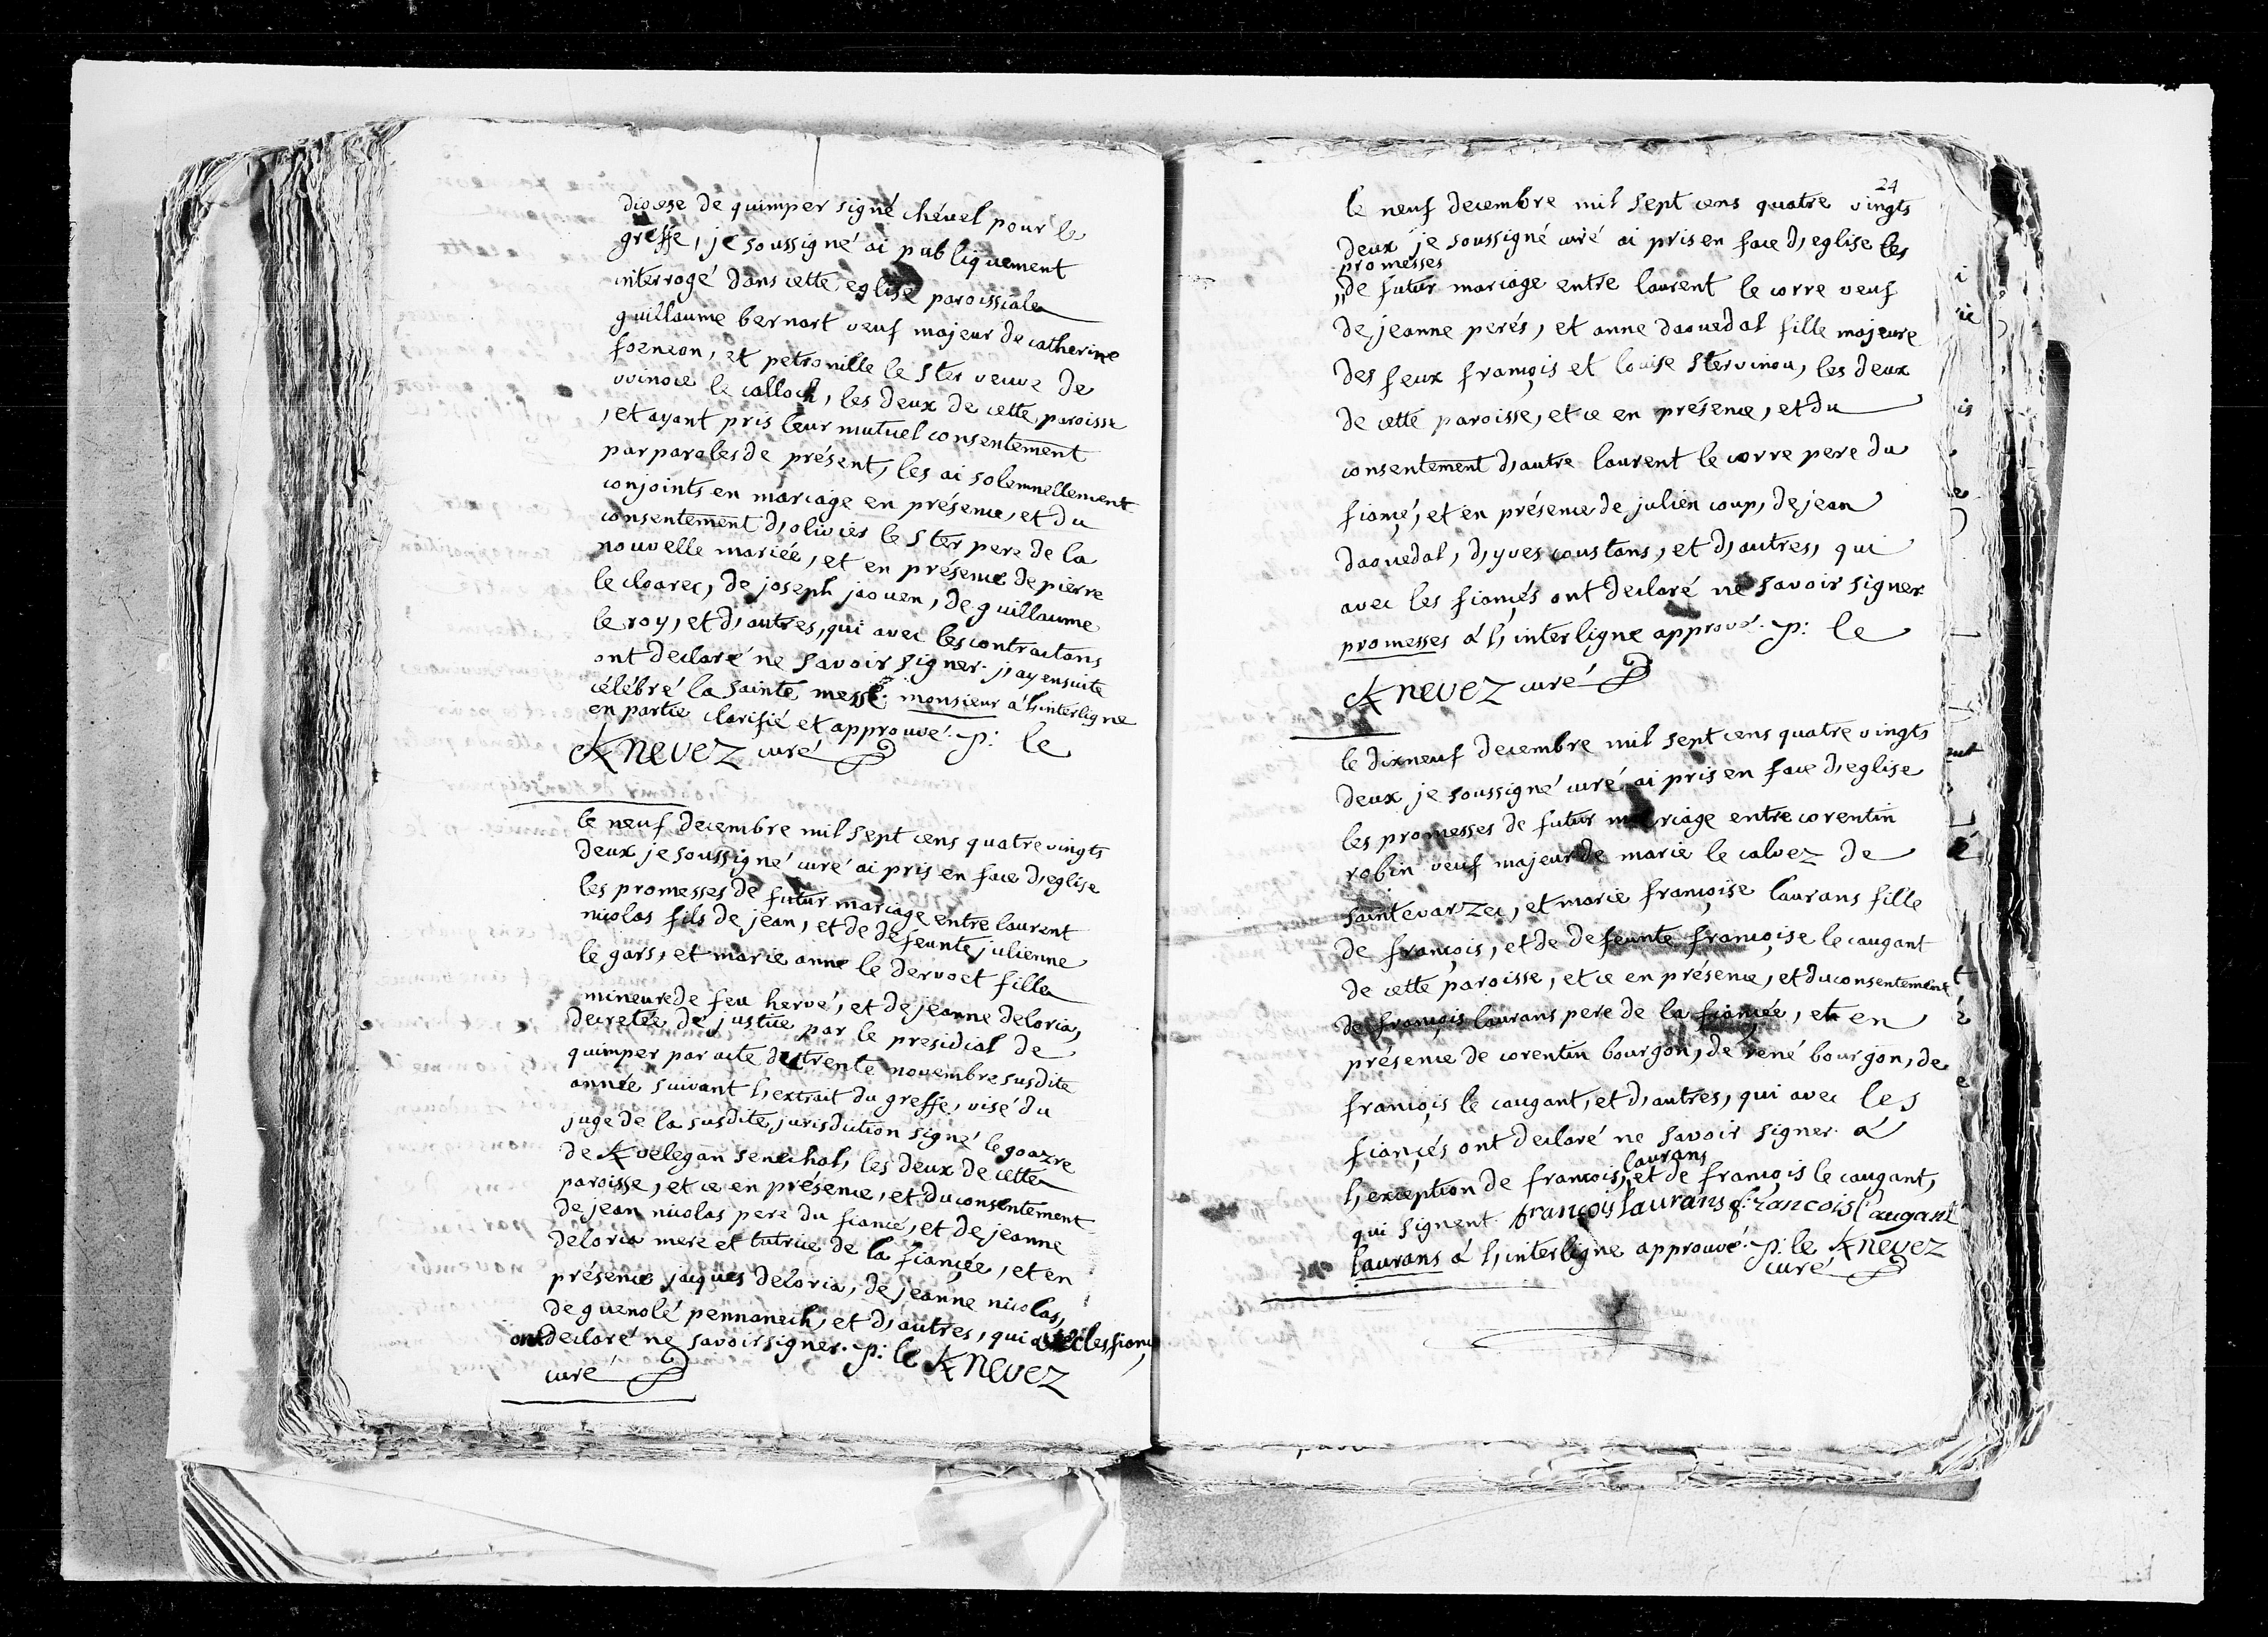 diocese de quimper signé chével pour le
greffe, je soussigné ai publiquement
interrogé dans cette eglise paroissiale
guillaume bernart veuf majeur de catherine
foeneon, et petronille le ster veuve de
vvinoce le calloch, les deux de cette paroisse
, et ayant pris leur mutuel consentement
par paroles de présent, les ai solemnellement
conjoints en mariage en présence, et du
consentement d, olivier le ster pere de la
nouvelle mariée, et en présence de pierre
le cloarec, de joseph jaouen, de guillaume
le roy, et d, autres, qui avec les contractans
ont declaré ne savoir signer. j, ay ensuite
célébré la sainte messe. monsieur á l, interligne
en partie clarifié et approuvé. p: le
Knevez curé
le neuf decembre mil sept cens quatre vingts
deux je soussigné curé ai pris en face d, eglise
les promesses de futur mariage entre laurent
nicolas fils de jean, et de defeunte julienne
le gars, et marie anne le dervoet fille
mineure de feu hervé, et de jeanne deloria,
decretée de justice par le presidial de
quimper par acte du trente novembre susdite
année suivant l, extrait du greffe, visé du
juge de la susdite jurisdiction signé le goazre
de Kvelegan senechal, les deux de cette
paroisse, et ce en présence, et du consentement
de jean nicolas pere du fiancé, et de jeanne
deloria mere et tutrice de la fiancée, et en
présence jacques deloria, de jeanne nicolas,
de guenolé pennanech, et d, autres, qui avec les fiancé
ont declaré ne savoir signer. p: le Knevez
curé
24
le neuf decembre mil sept cens quatre vingts
deux je soussigné curé ai pris en face d, eglise les
promesses
,,de futur mariage entre laurent le corre veuf
de jeanne perés, et anne daouedal fille majeure
des feux françois et louise stervinou, les deux
de cette paroisse, et ce en présence, et du
consentement d, autre laurent le corre pere du
fiancé, et en présence de julien coup, de jean
daouedal, d, yves coustans, et d, autres, qui
avec les fiancés ont declaré ne savoir signer
promesses á l, interligne approuvé. p: le
Knevez curé
le dixneuf decembre mil sept cens quatre vingts
deux je soussigné curé ai pris en face d, eglise
les promesses de futur mariage entre corentin
robin veuf majeur de marie le calvez de
saintevarzec, et marie françoise laurans fille
de françois, et de defeunte françoise le caugant
de cette paroisse, et ce en présence, et du consentement
de françois laurans pere de la fiancée, et en
présence de corentin bourgon, de rené bourgon, de
françois le caugant, et d, autres, qui avec les
fiançés ont declaré ne savoir signer á
laurans
l, exception de françois, et de françois le caugant,
qui signent. françois laurans francois caugant
laurans á l, interligne approuvé. p: le Knevez
curé